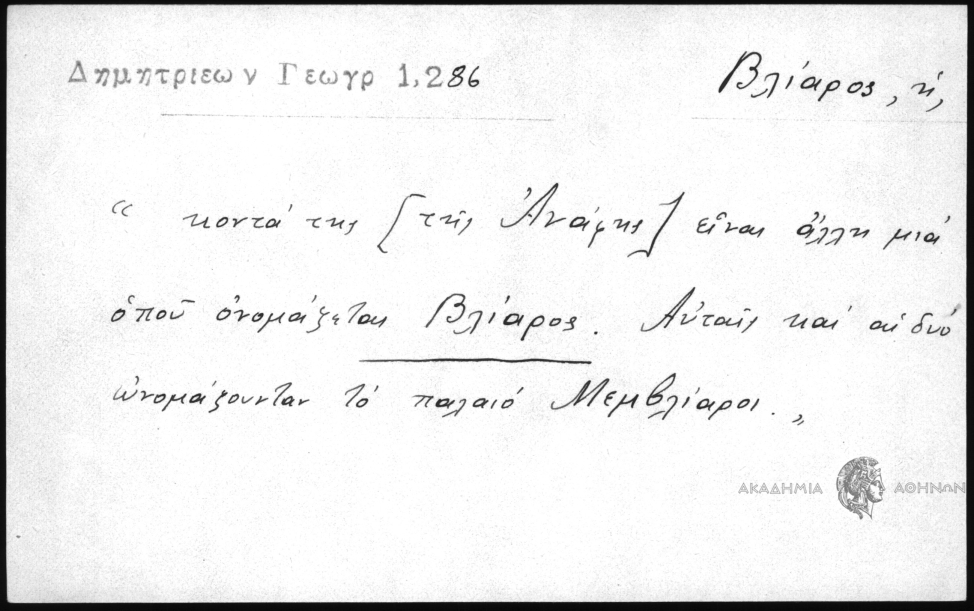 Δημητριεων Γεωγρ 1,286
Βλίαρος, ἡ,
“ κοντά της [τῆς Ἀνάφης] εἶναι ἄλλη μιά
ὁποῦ ὀνομάζεται Βλίαρος. Αὐταῖς καί αἱ δυό
ὠνομάζουνταν τό παλαιό Μεμβλίαροι. „
ΑΚΑΔΗΜΙΑ ΑΘΗΝΩΝ